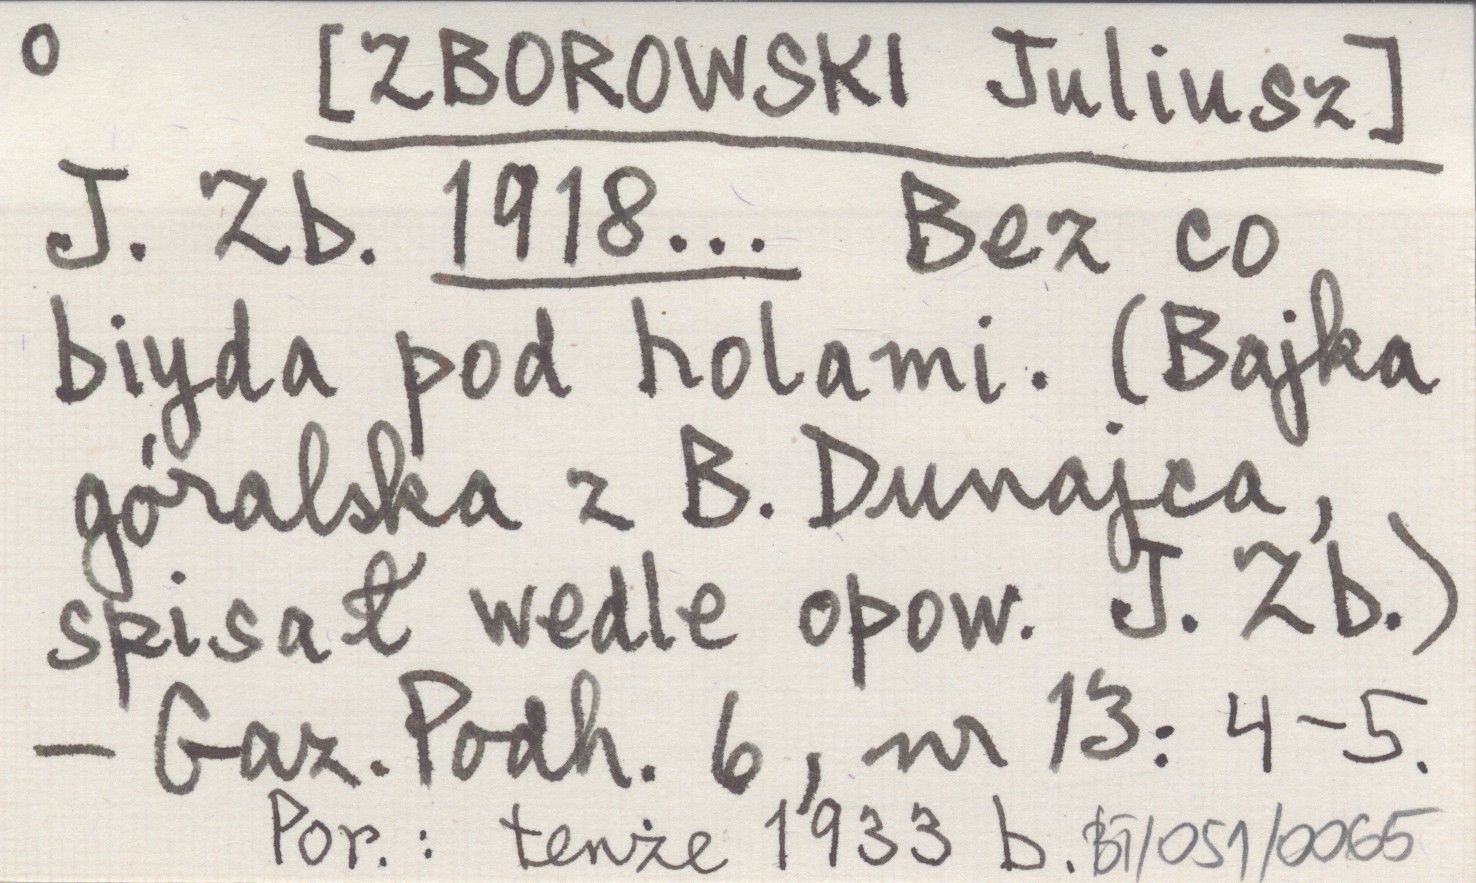 o [ZBOROWSKI Juliusz]
J. Zb. 1918... Bez co
biyda pod holami. (Bajka
góralska z B. Dunajca,
spisał wedle opow. J. Zb.)
– Gaz. Podh. 6, nr 13: 4–5.
Por.: tenże 1933 b. BT/051/0065